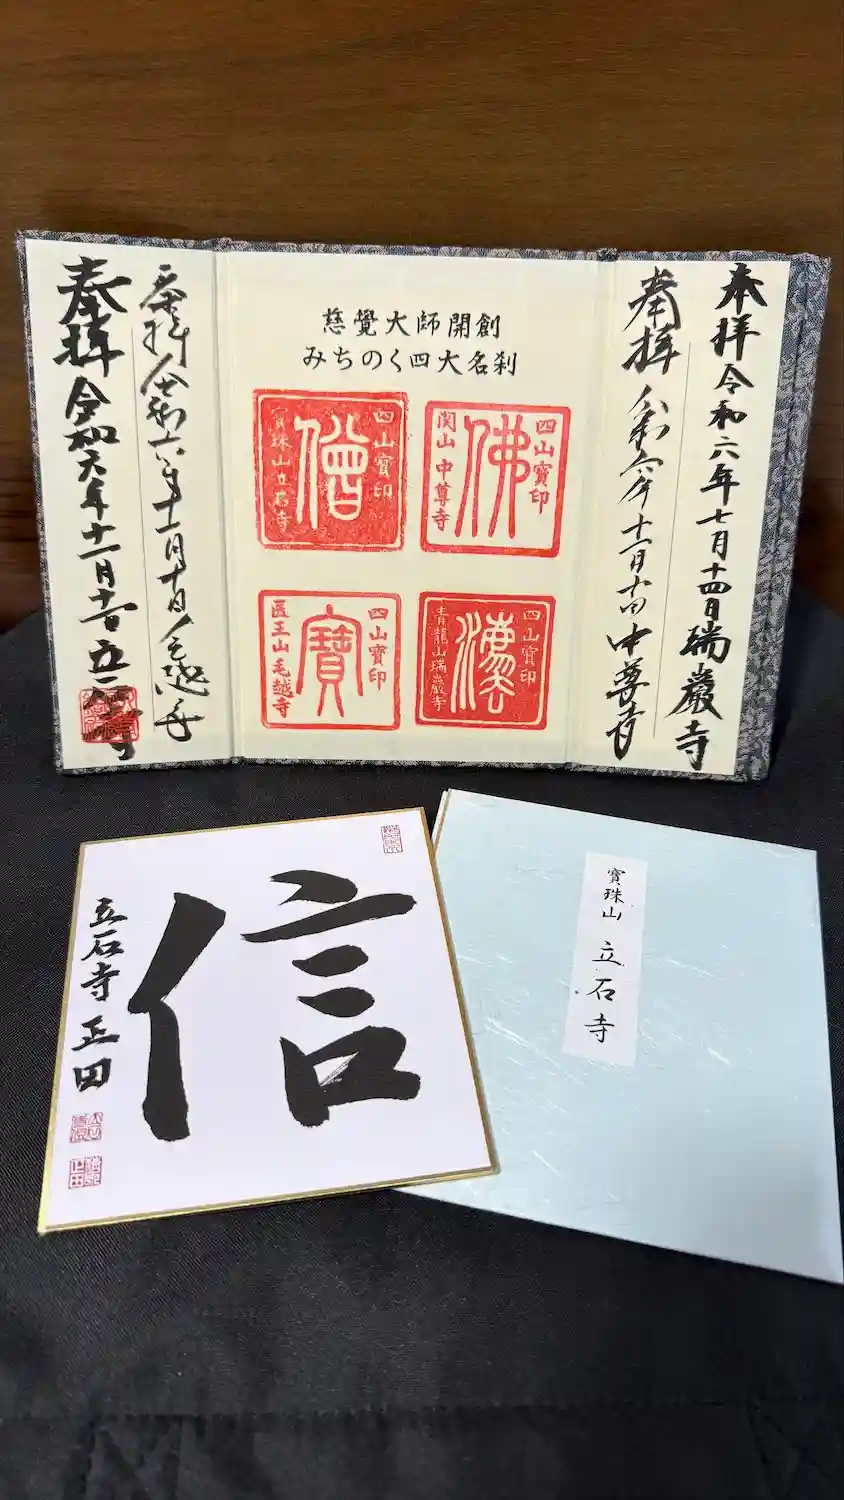 慈覺大師開創
みちのく四大名刹
四山寳印
佛
関山 中尊寺
四山寳印
僧
寳珠山立石寺
四山寳印
法
青龍山瑞巖寺
四山寳印
寳
医王山毛越寺
奉拝 令和六年七月十四日 瑞巖寺
奉拝 令和六年十一月十日 中尊寺
奉拝 令和六年十一月十日 毛越寺
奉拝 令和六年十一月十日 立石寺
信
立石寺 正田
寳珠山 立石寺